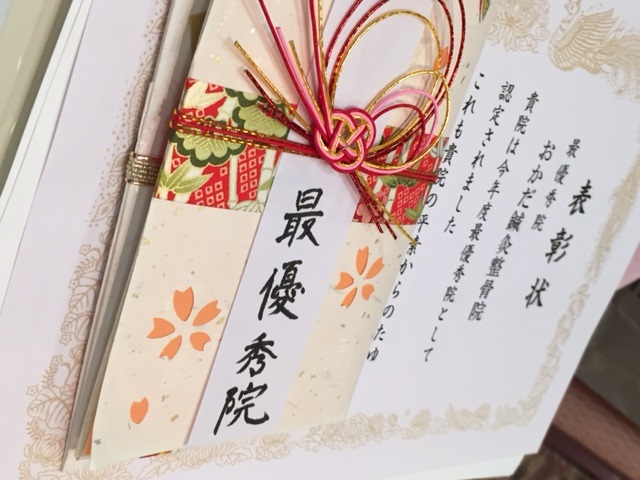 表彰状
最優秀院
おかだ鍼灸整骨院
貴院は今年度最優秀院として
認定されました
これも貴院の平素からのたゆ
最優秀院